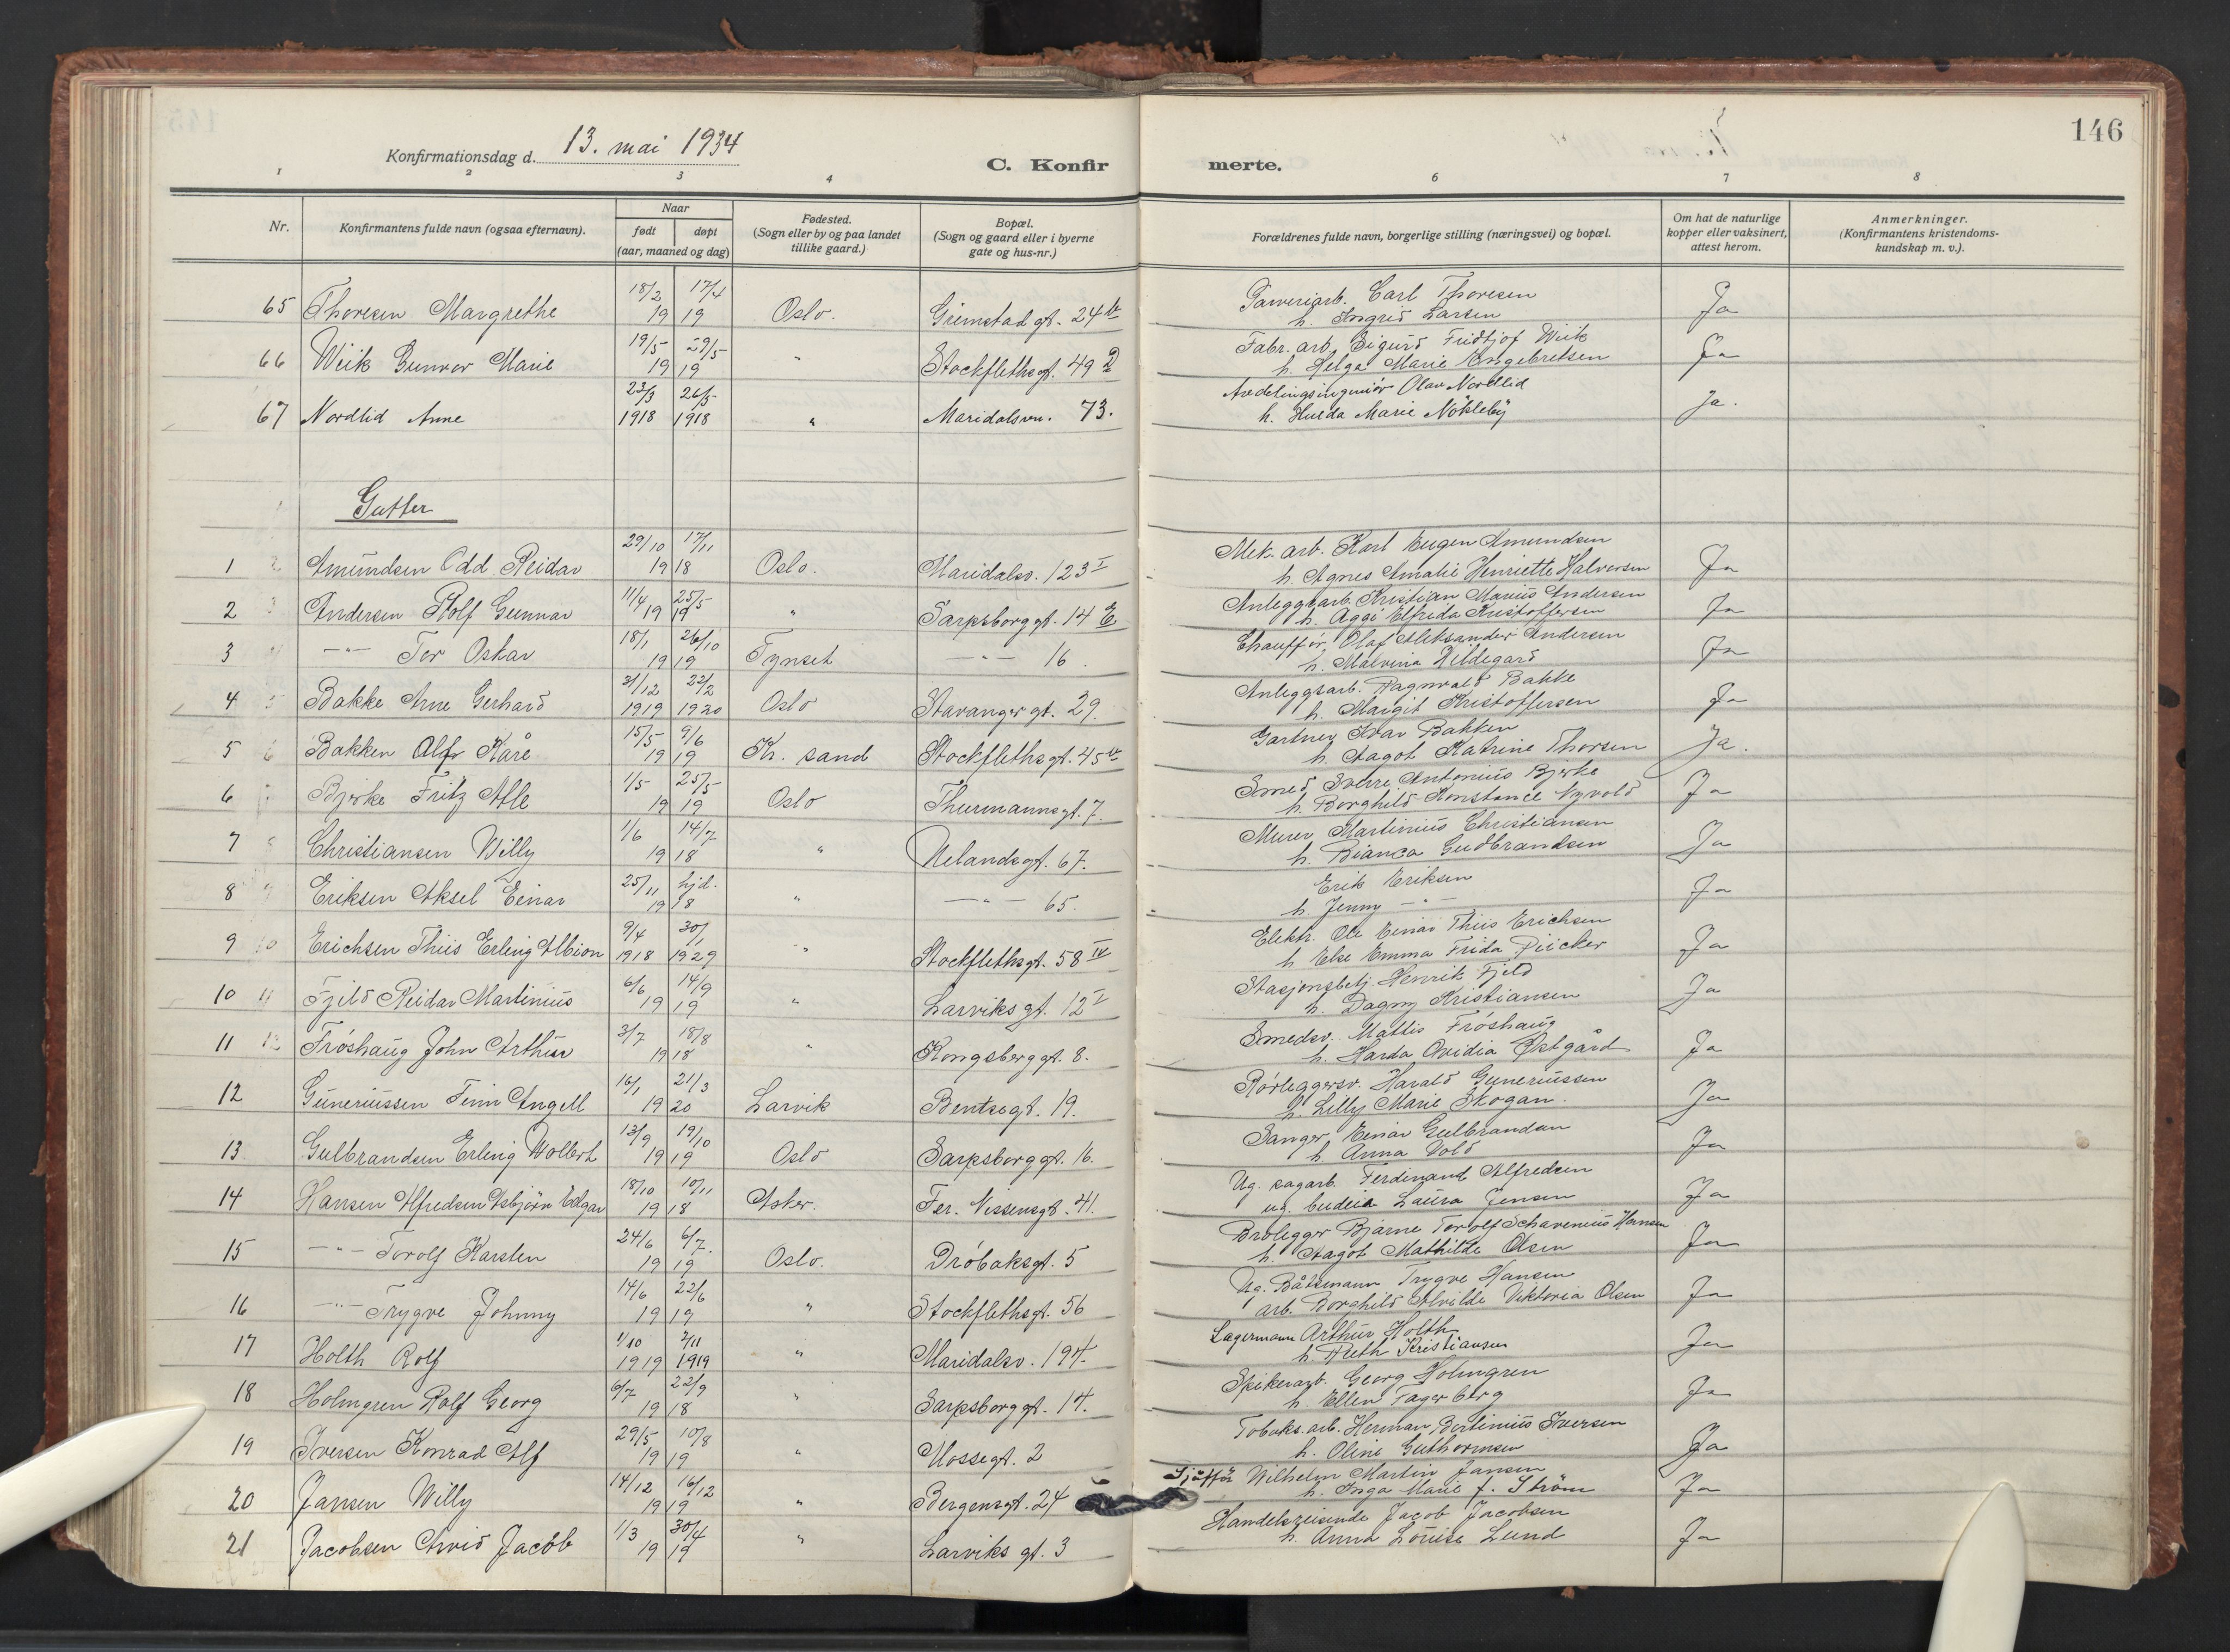 146
Konfirmationsdag d. 13. mai 1934
C. Konfirmerte.
1 2 3 4 6 7 8
Nr. Konfirmantens fulde navn (ogsaa efternavn). Naar født døpt (aar, maaned og dag) Fødested. (Sogn eller by og paa landet tillike gaard.) Bopæl. (Sogn og gaard eller i byerne gate og hus-nr.) Forældrenes fulde navn, borgerlige stilling (næringsvei) og bopæl. Om hat de naturlige kopper eller vaksinert, attest herom. Anmerkninger. (Konfirmantens kristendomskundskap m. v.).
65 Thoresen Margrethe 18/2 17/4 19 19 Oslo. Grimstad gt. 24 Garveriarb. Carl Thoresen h. Ingrid Larsen Ja
66 Wiik Gunvor Marie 19/5 29/5 19 19 " Stockflethsgt. 49 Fabr. arb. Sigurd Fridtjof Wiik h. Helga Marie Engebretsen Ja
67 Nordlid Anne 23/3 26/5 1918 1918 " Maridalsvn. 73. Avdelingsingeniör Olav Nordlid h. Hulda Marie Nökleby Ja.
Gutter
1 Amundsen Odd Reidar 29/10 17/11 19 18 Oslo. Maridalsv. 123 I Mek. arb. Karl Eugen Amundsen h. Agnes Amalie Henriette Halvorsen Ja
2 Andersen Rolf Gunnar 11/4 25/5 19 19 " Sarpsborggt. 14 Anleggsarb. Kristian Marius Andersen h. Aggi Elfrida Kristoffersen Ja
3 -"- Tor Oskar 18/1 26/10 19 19 Tynset -"- 16. Chauffør Olaf Aleksander Andersen h. Malvina Hildegard Ja
4 Bakke Arne Gerhard 31/12 22/2 1919 1920 Oslo Stavangergt. 29. Anleggsarb. Ragnvald Bakke h. Margit Kristoffersen Ja
5 Bakken Alf Kåre 15/5 9/6 19 19 Kr. sand Stockflethsgt. 45 Gartner Ivar Bakken h. Aagot Katrine Thorsen Ja.
6 Bjerke Fritz Atle 1/5 25/5 19 19 Oslo Thurmannsgt. 7. Smed Sverre Antonius Bjerke h. Borghild Konstance Nyvold Ja
7 Christiansen Willy 1/6 14/7 19 18 " Uelandsgt. 67. Murer Martinius Christiansen h. Bianca Gudbrandsen Ja
8 Eriksen Aksel Einar 25/11 hjd. 19 18 " -"- 65. Erik Eriksen h. Jenny -"- Ja
9 Erichsen Thiis Erling Albion 9/4 30/1 1918 1929 " Stockflethsgt. 58 IV Elektr. Ole Einar Thiis Erichsen h. Else Emma Frida Ja
10 Fjeld Reidar Martinius 6/6 14/9 19 19 " Larviksgt. 12 I Stasjonsbetj. Henrik Fjeld h. Dagny Kristiansen Ja
11 Frøshaug John Arthur 3/7 18/8 19 18 " Kongsberggt. 8. Smedsv. Mattis Frøshaug h. Harda Ovidia Østgård Ja
12 Guneriussen Finn Angell 16/1 21/3 19 20 Larvik Bentsegt. 19. Rørleggersv. Harald Guneriussen h. Lilly Marie Skogan. Ja
13 Gulbrandsen Erling Wollert 13/9 19/10 19 19 Oslo Sarpsborggt. 16. Sanger Einar Gulbrandsen h. Anna Vold Ja
14 Hansen Alfredsen Asbjørn Edgar 18/10 10/11 19 18 Asker. Fer. Nissensgt. 41. Ug. sagarb. Ferdinand Alfredsen ug. budeie Laura Jensen Ja
15 -"- Torolf Karsten 24/6 6/7. 19 19 Oslo. Drøbaksgt. 5 Brolegger Bjarne Torolf Schavenius Hansen h. Aagot Mathilde Olsen Ja
16 -"- Trygve Johnny 14/6 22/6 19 19 " Stockflethsgt. 56 Ug. Båtsmann Trygve Hansen arb. Borghild Alvilde Viktoria Olsen Ja
17 Holth Rolf 1/10 2/11 1919 1919 " Maridalsv. 194. Lagermann Arthur Holth h. Ruth Kristiansen Ja
18 Holmgren Rolf Georg 6/7 22/9 19 18 " Sarpsborggt. 14. Spikerarb. Georg Holmgren h. Ellen Fagerberg Ja
19 Iversen Konrad Alf 29/5 10/8 19 19 " Mossegt. 2 Tobaks. arb. Herman Bertinius Iversen h. Oline Guthormsen Ja
20 Jansen Willy 14/12 16/12 19 19 " Bergensgt. 24 Sjåffør Wilhelm Martin Jansen h. Inga Marie f. Strøm Ja
21 Jacobsen Arvid Jacob 1/3 30/4 19 19 " Larviks gt. 3 Handelsreisende Jacob Jacobsen h. Anna Louise Lund Ja